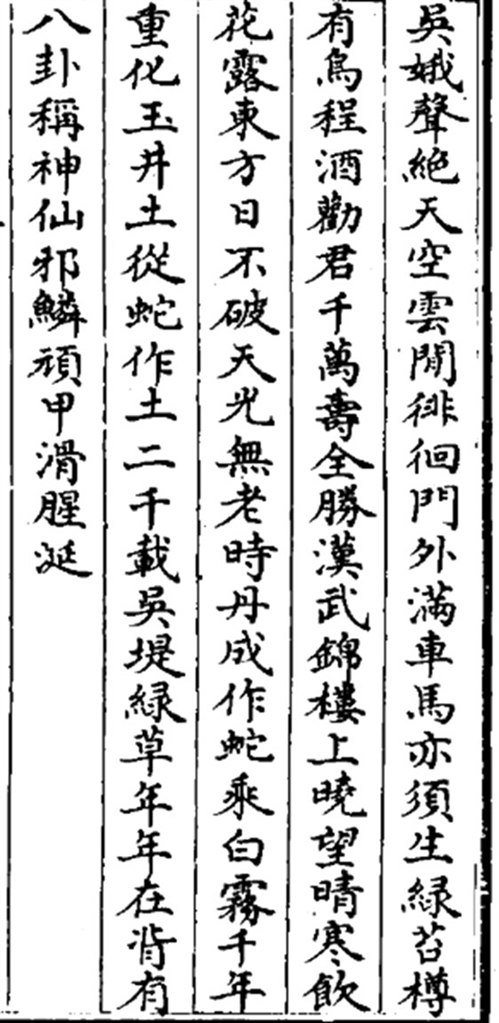 吳娥聲絕天空雲閒徘徊門外滿車馬亦須生緑苔樽
有烏程酒勸君千萬壽全勝漢武錦樓上曉望晴寒飲
花露東方日不破天光無老時丹成作蛇乘白霧千年
重化玉井土從蛇作土二千載吳堤緑草年年在背有
八卦稱神仙邪鱗頑甲滑腥涎